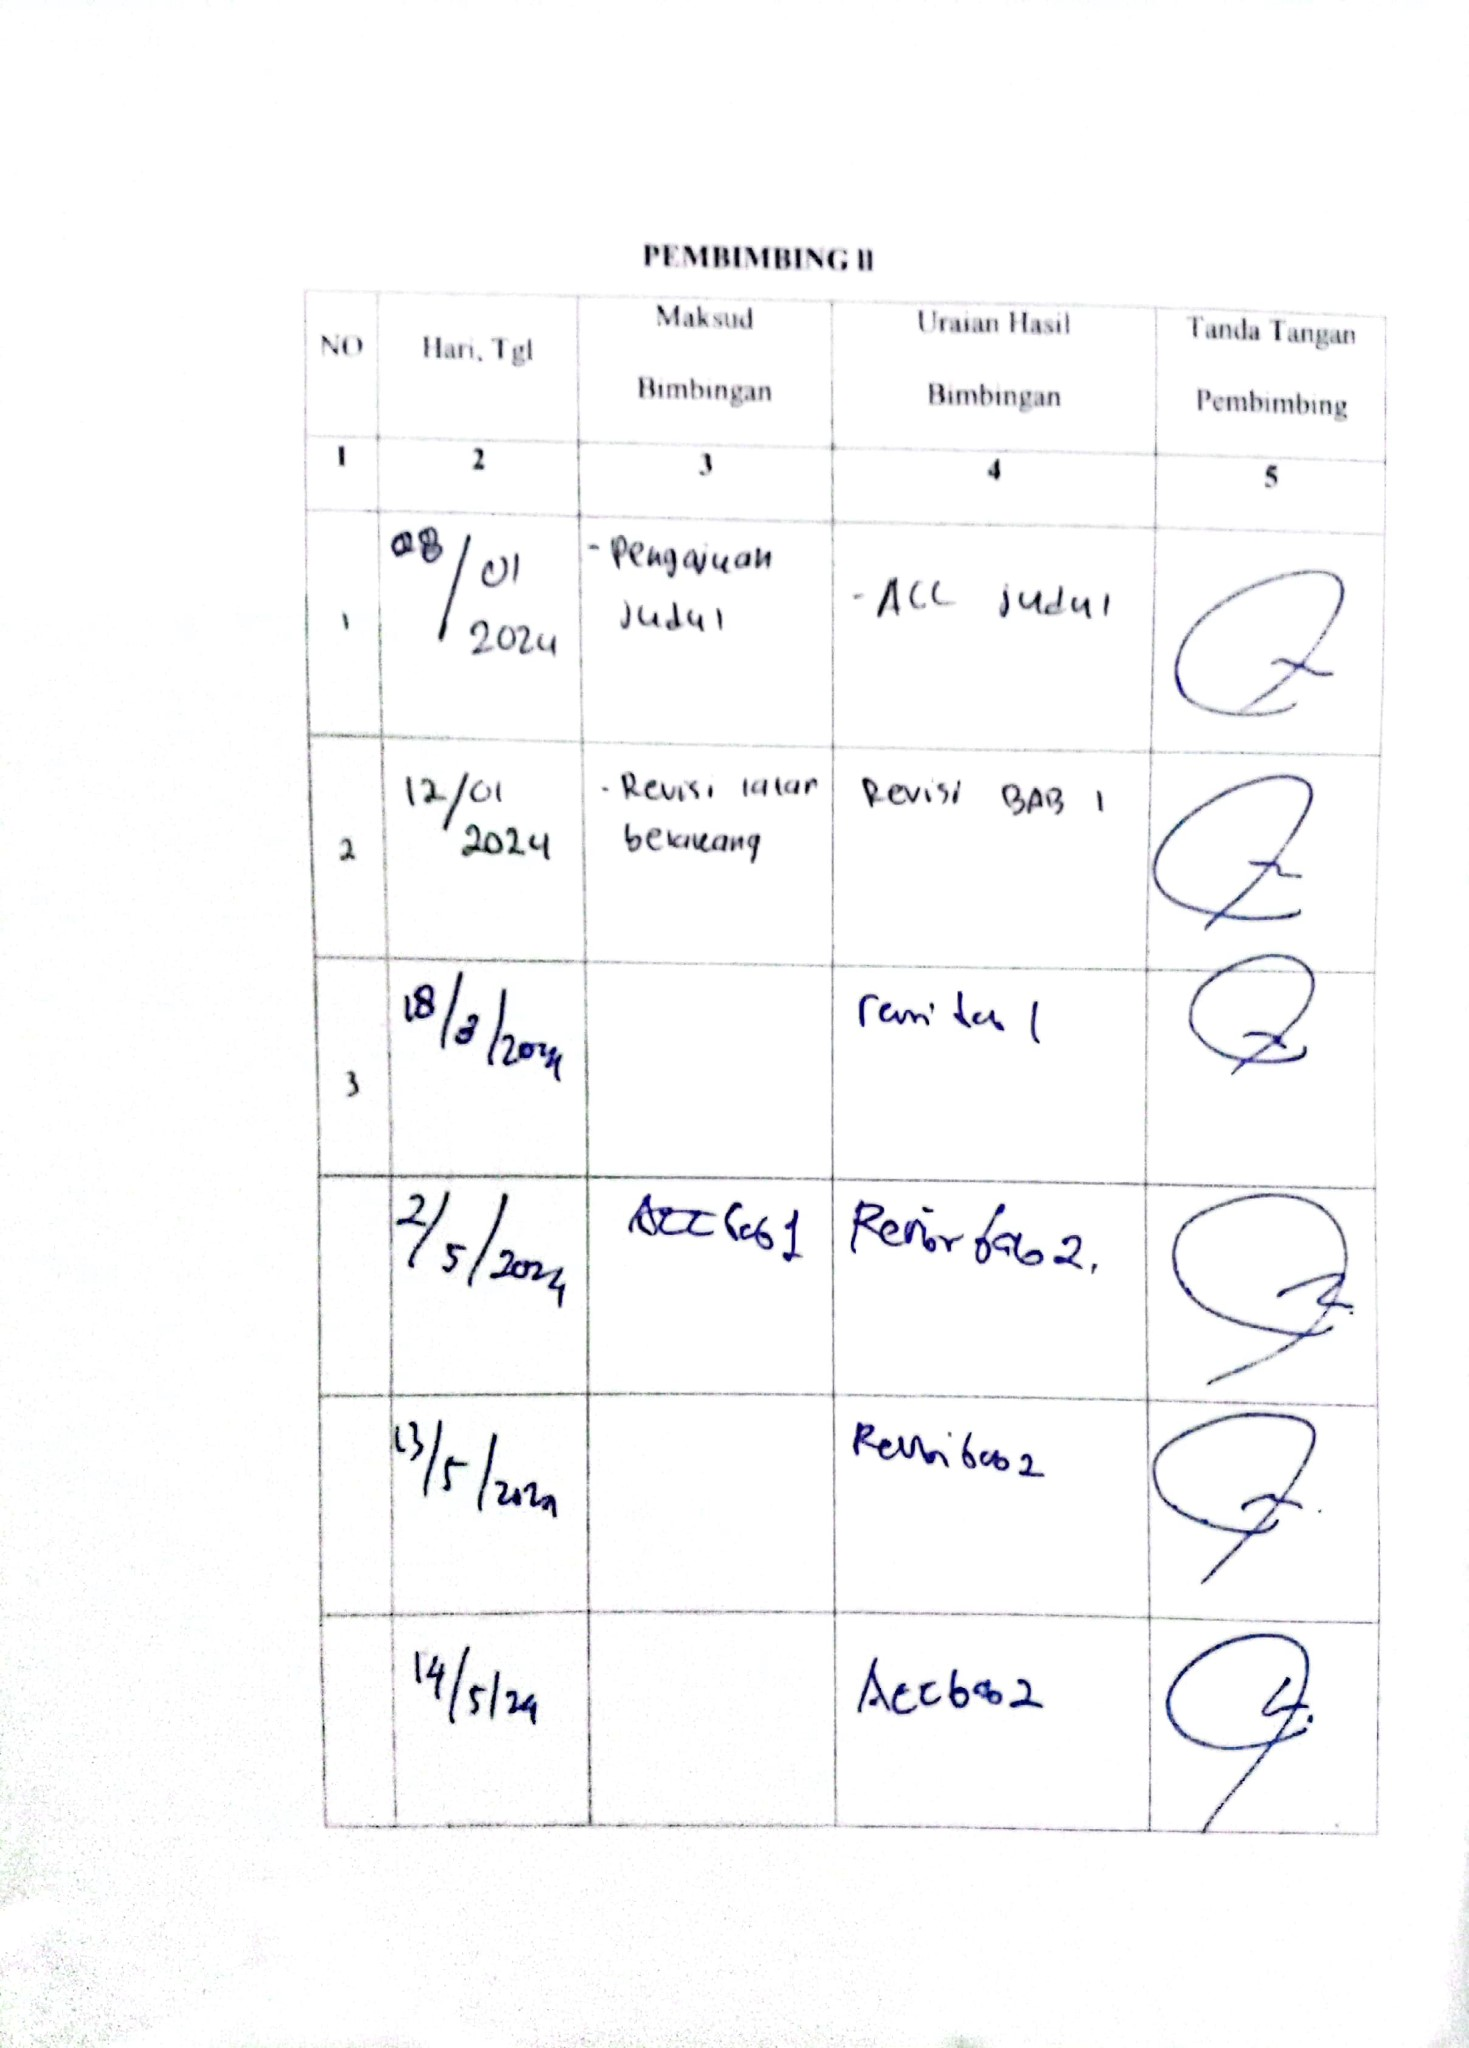 PEMBIMBING II
NO
Hari, Tgl
Maksud
Bimbingan
Uraian Hasil
Bimbingan
Tanda Tangan
Pembimbing
1
2
3
4
5
1
08/01
2024
- Pengajuan
judul
- ACC judul
2
12/01
2024
- Revisi latar
belakang
Revisi BAB 1
3
18/3/2024
revisi bab 1
2/5/2024
Acc bab 1
Revisi bab 2.
13/5/2024
Revisi bab 2
14/5/24
Acc bab 2